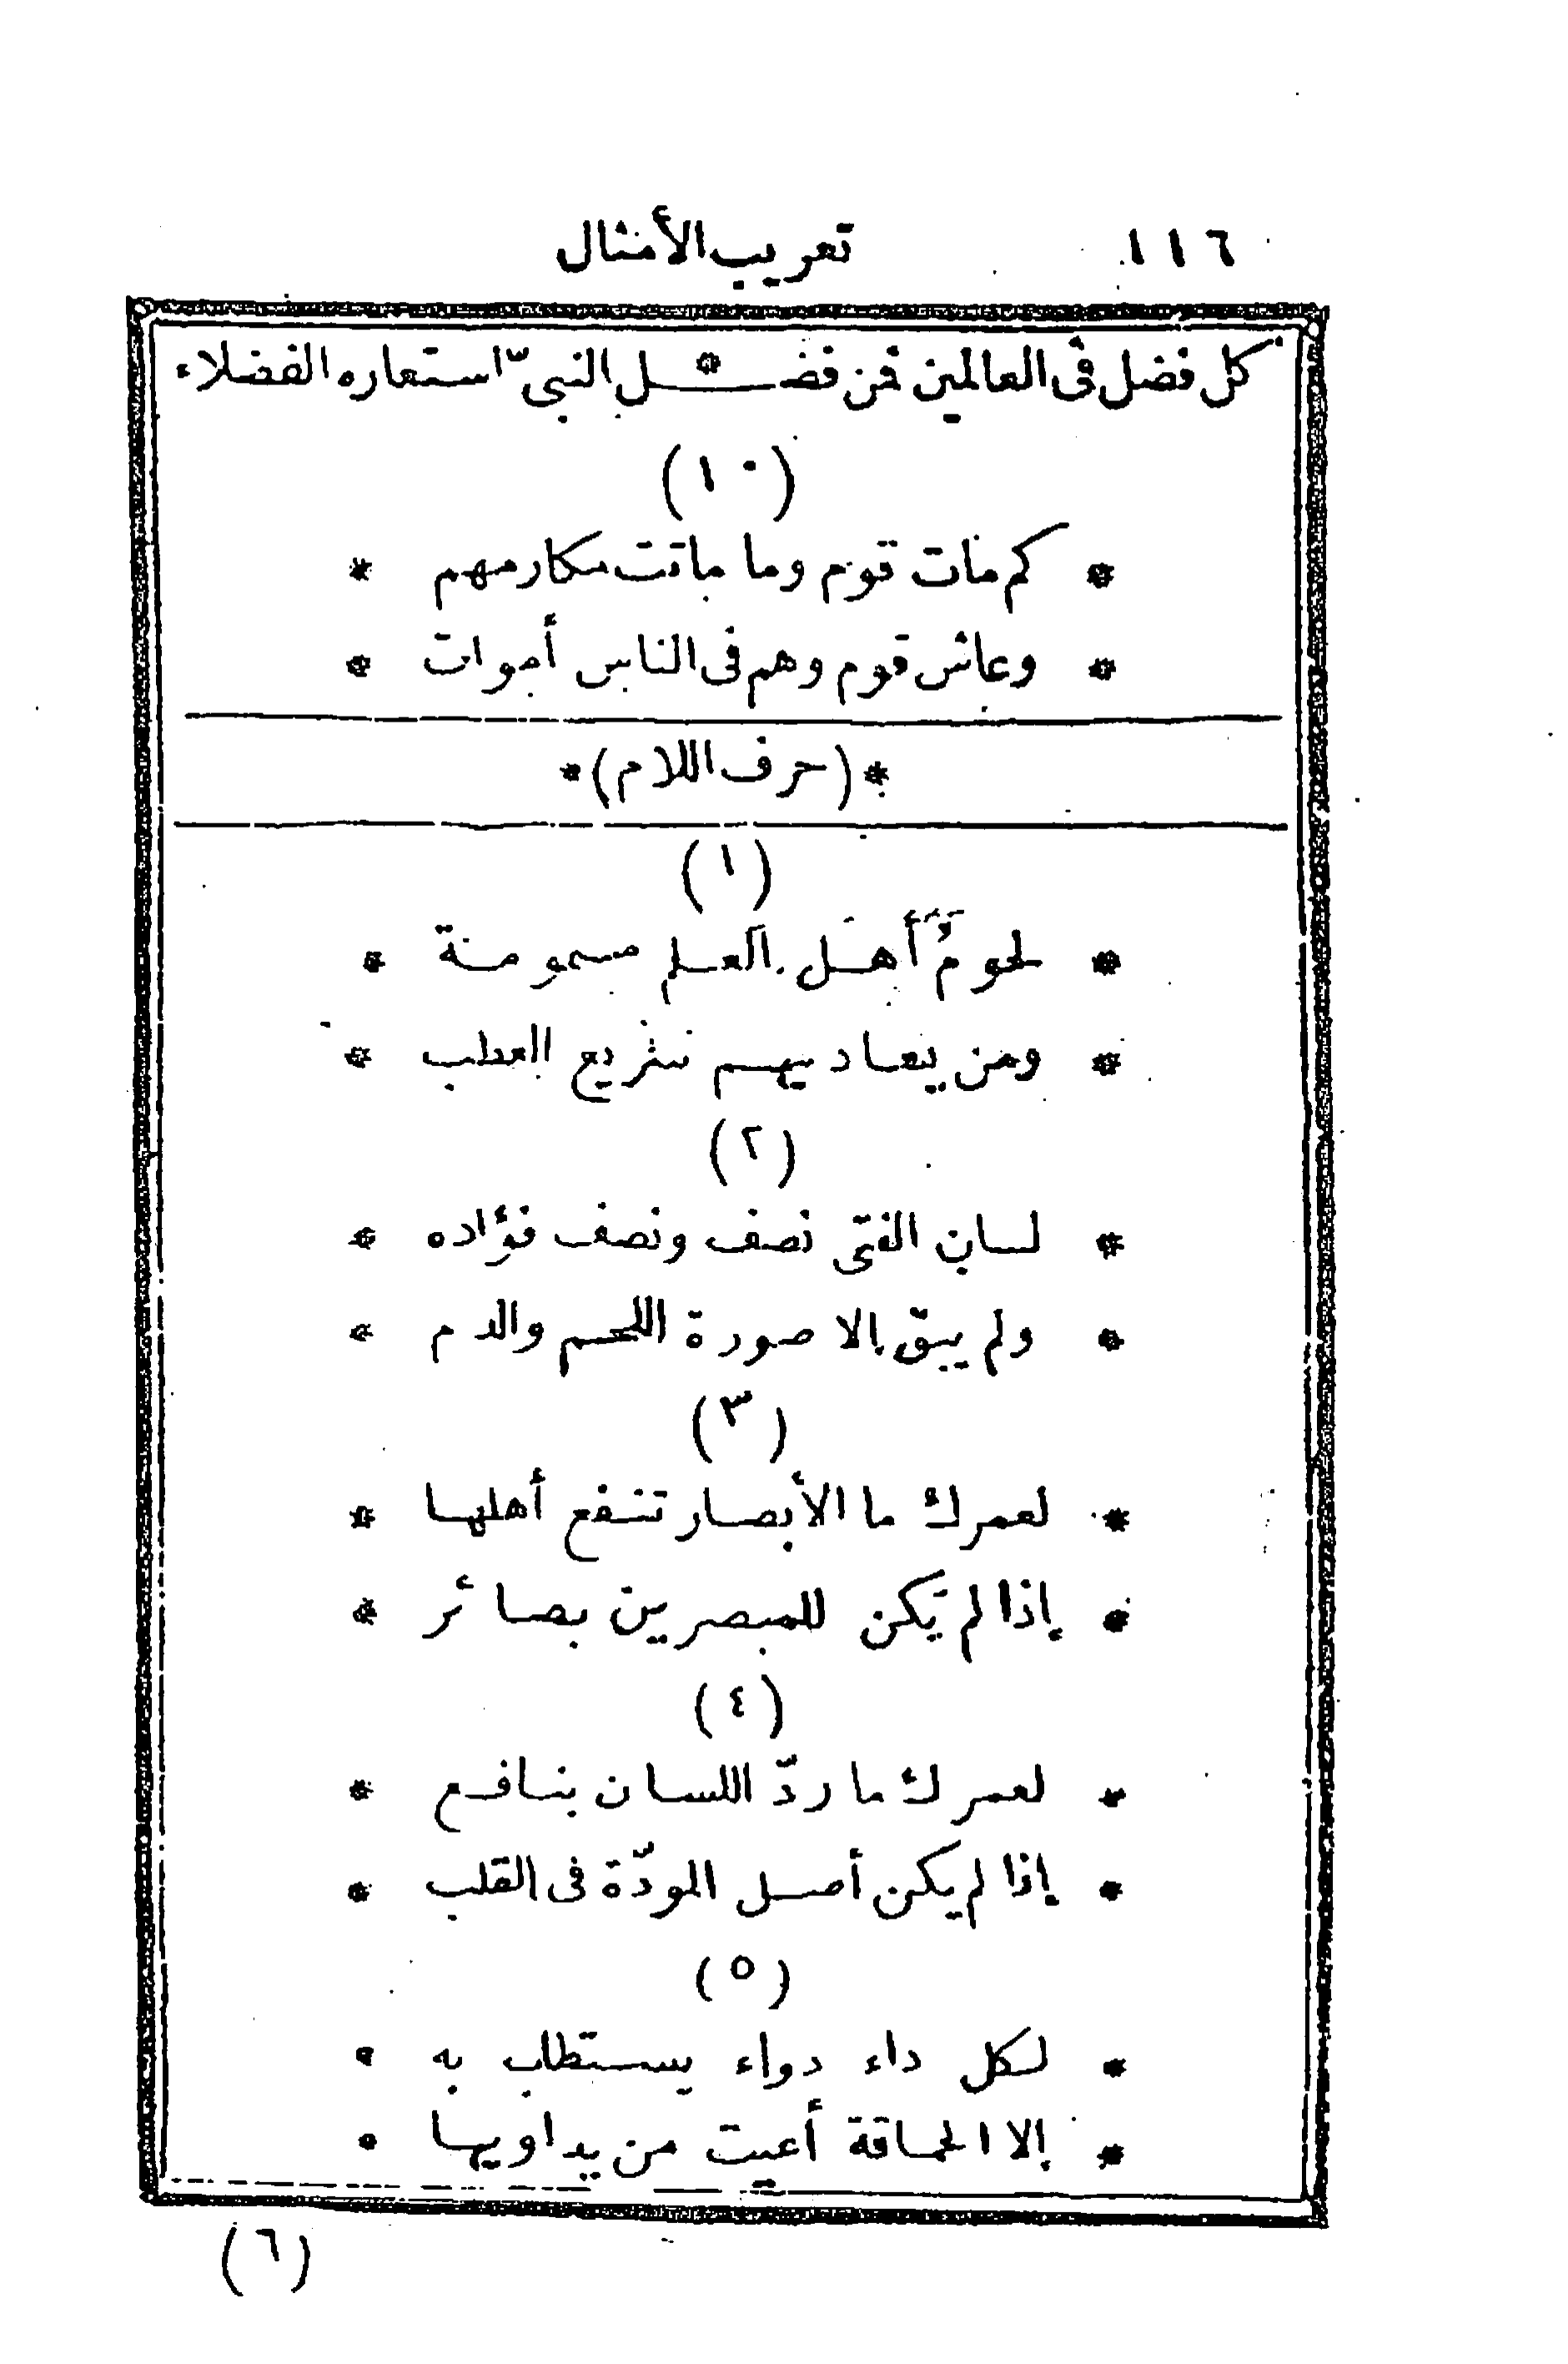 ١١٦ تعريب الأمثال
كل فضل فى العالمين فمن فضـ * ـل النبىّ استعاره الفضلاء
(١٠)
* كم مات قوم وما ماتت مكارمهم *
* وعاش قوم وهم فى الناس أموات *
* (حرف اللام) *
(١)
* لحومُ أهل العلم مسمومة *
* ومن يعاديهم سريع العطب *
(٢)
* لسان الفتى نصف ونصف فؤاده *
* ولم يبق إلا صورة اللحم والدم *
(٣)
* لعمرك ما الأبصار تنفع أهلها *
* إذا لم يكن للمبصرين بصائر *
(٤)
* لعمرك ما ردّ اللسان بنافع *
* إذا لم يكن أصل المودّة فى القلب *
(٥)
* لكل داء دواء يستطاب به *
* إلا الحماقة أعيت من يداويها *
(٦)